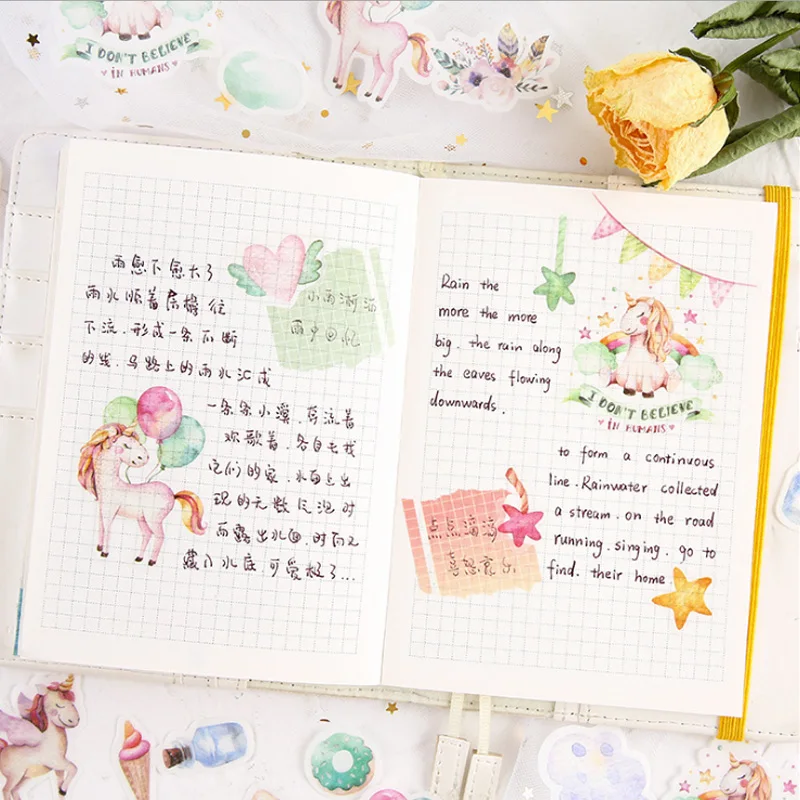 I DON'T BELIEVE
IN HUMANS
雨愈下愈大了
雨水顺着房檐往
下流.形成一条不断
的线.马路上的雨水汇成
小雨淅沥
雨中回忆
一条条小溪.奔流着
欢歌着.各自去找
它们的家.水面上出
现的无数气泡时
而露出水面.时而又
藏入水底.可爱极了...
Rain the
more the more
big. the rain along
the eaves flowing
downwards.
I DON'T BELIEVE
IN HUMANS
to form a continuous
line. Rainwater collected
a stream. on the road
running. singing. go to
find. their home.
点点滴滴
喜怒哀乐